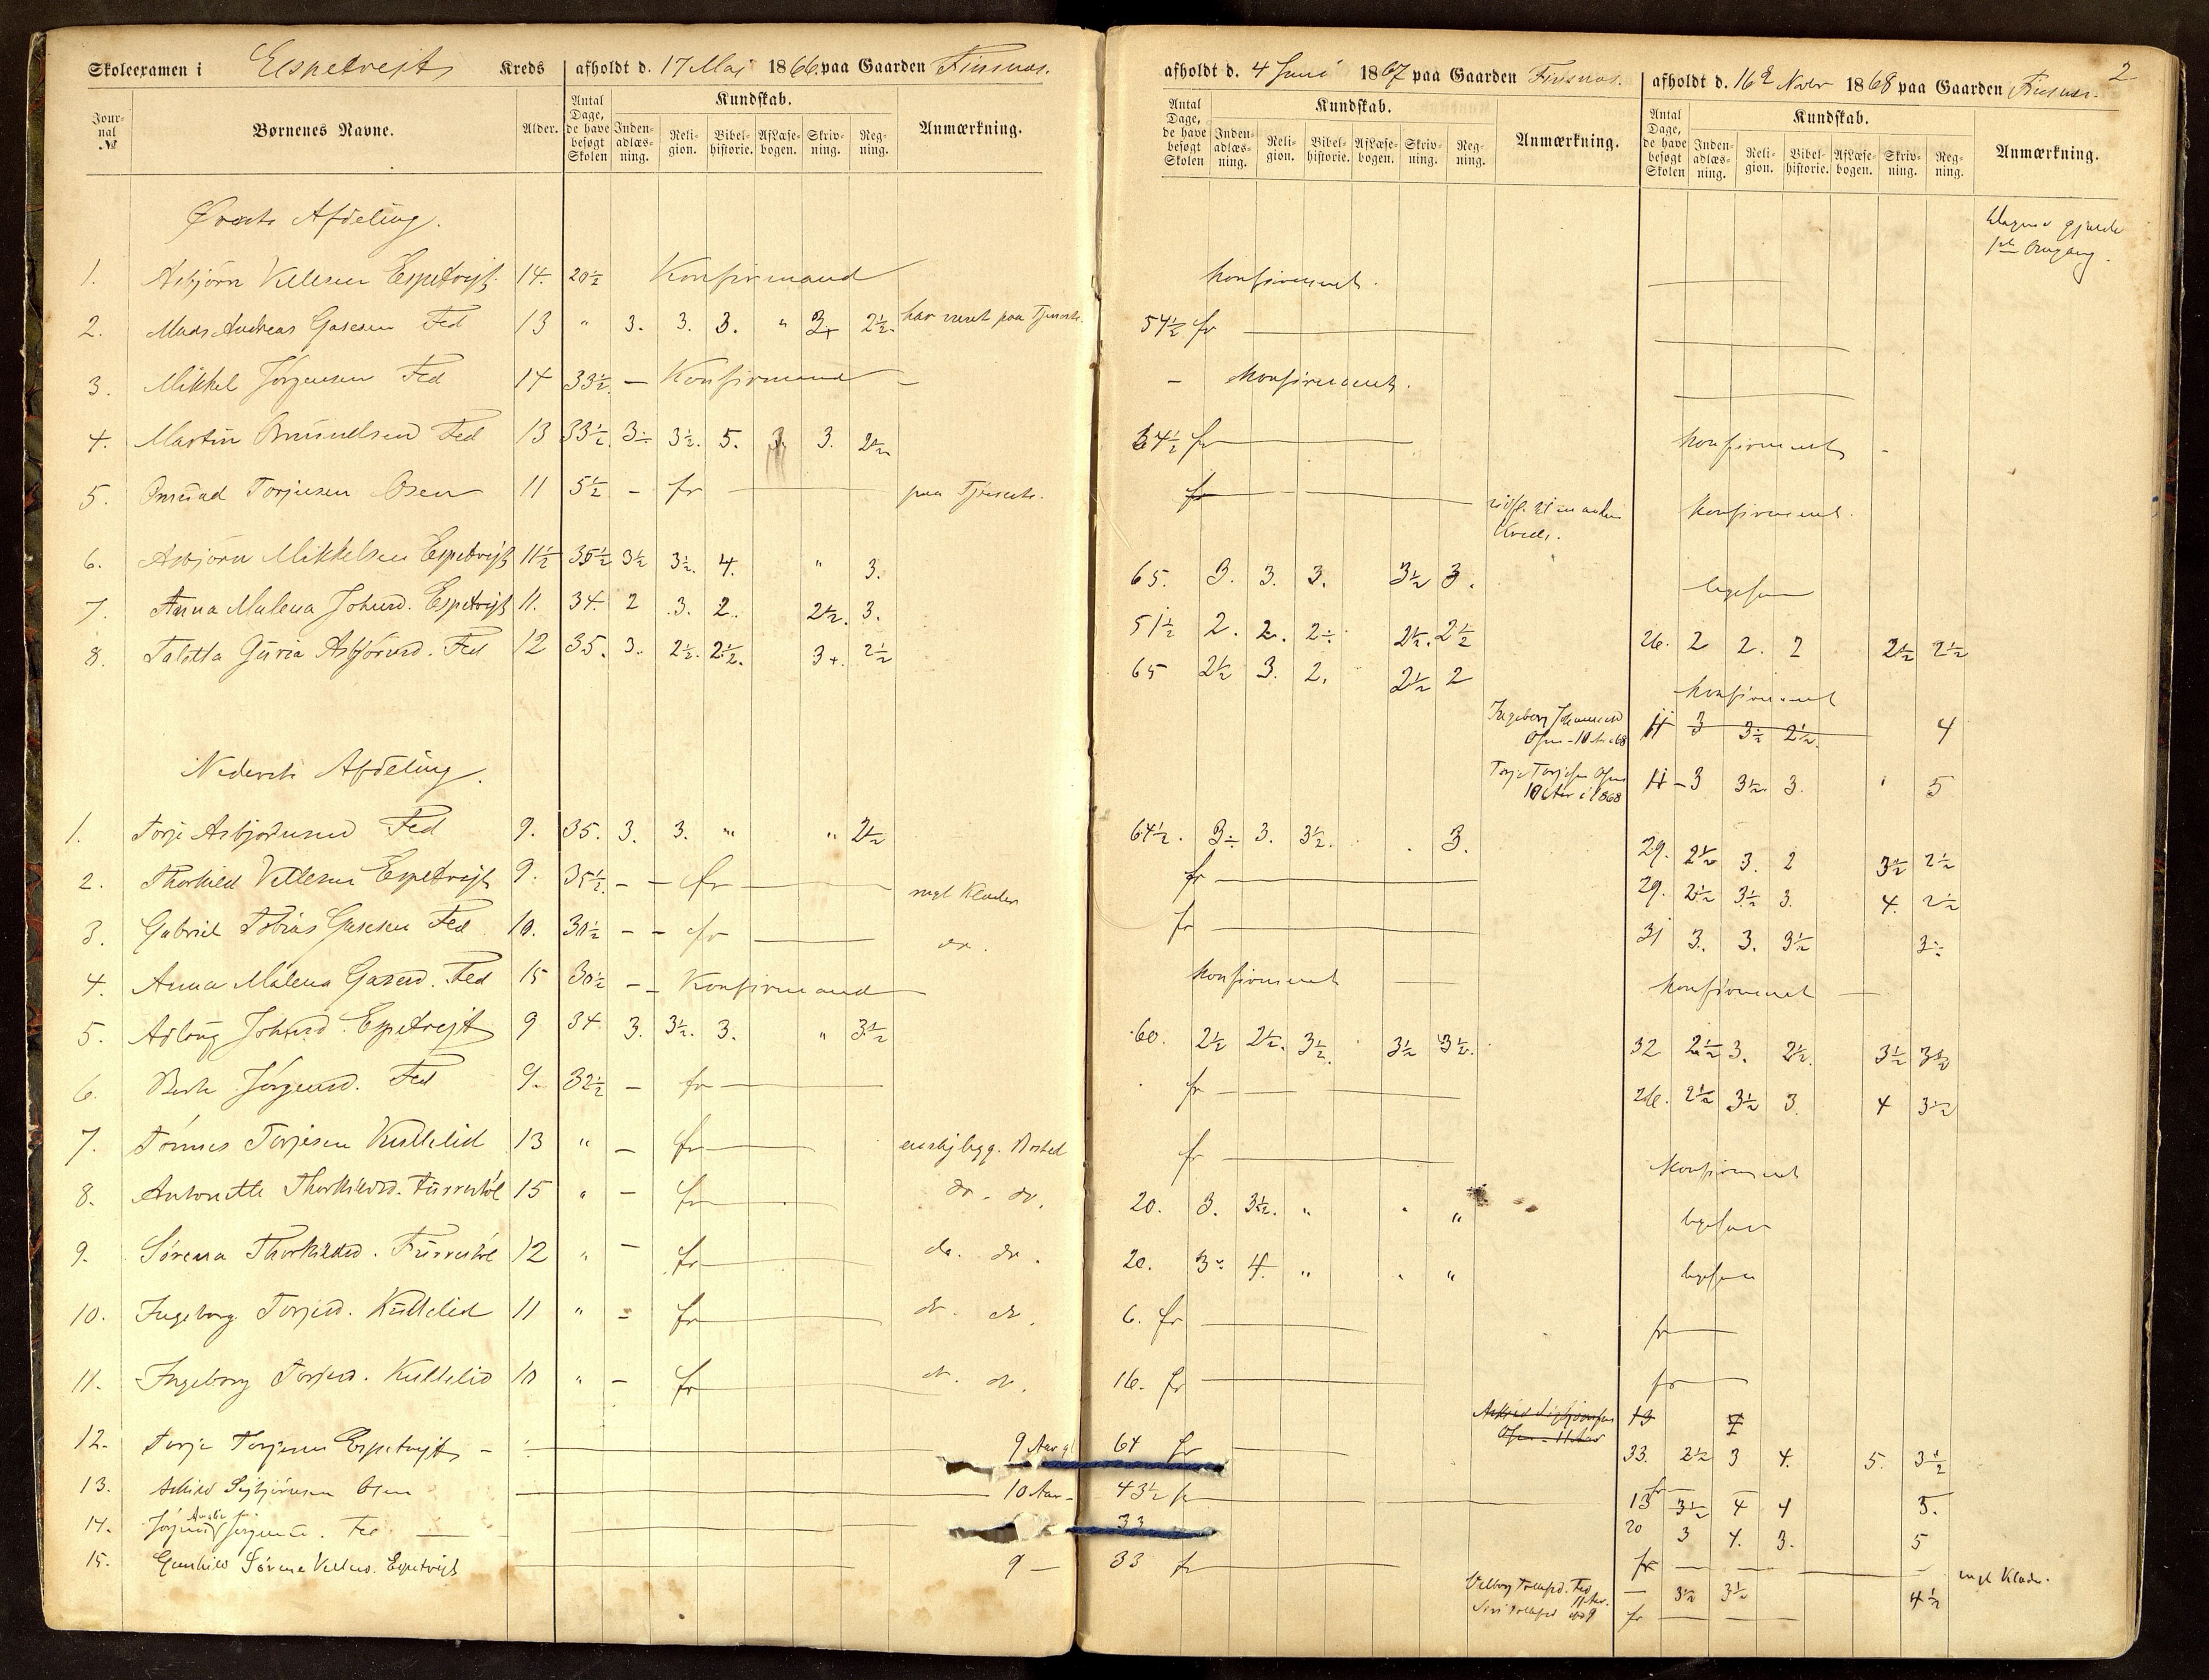 Skoleexamen i Espetvejt Kreds afholdt d. 17 Maj 1866 paa Gaarden Finsnæs.
Journal № Børnenes Navne. Alder. Antal Dage, de have besøgt Skolen Kundskab. Indenadlæsning. Religion. Bibelhistorie. Af Læsebogen. Skrivning. Regning. Anmærkning.
Øverste Afdeling.
1. Asbjörn Vellesen Espetvejt. 14. 20½ Konfirmand
2. Mads Andreas Gasesen Fed 13 " 3. 3. 3. " 3+ 2½. har været paa Tjeneste.
3. Mikkel Jörgensen Fed 14 33½. — Konfirmand —
4. Martin Omundsen Fed 13 33½. 3÷ 3½. 5. 3. 3. 2½
5. Omund Torjusen Osen 11 5½ - fr — paa Tjeneste.
6. Asbjörn Mikkelsen Espetvejt 11½ 35½ 3½ 3½. 4. " 3.
7. Anna Malena Johnsd. Espetvejt 11. 34. 2 3. 2. 2½. 3.
8. Talette Guria Asbjörnsd. Fed 12 35. 3. 2½. 2½. 3+. 2½
Nederste Afdeling.
1. Torje Asbjörnsen Fed 9. 35. 3. 3. " " 2½
2. Thorkild Vellesen Espetvejt 9. 35½. - - fr — mgl Klæder
3. Gabriel Tobias Gasesen Fed 10. 30½ - - fr — do.
4. Anna Malena Gasesd. Fed 15 30½ - - Konfirmand —
5. Aslaug Johnsd. Espetvejt 9 34. 3. 3½. 3. " 3½
6. Berte Jörgensd. Fed 9. 32½ - fr —
7. Tönnes Torjesen Kultelid 13 " - fr — Bosted
8. Antonette Thorkildsd. 15 " - fr — do. do.
9. Sörena Thorkildsd. 12 " - fr — do. do.
10. Ingeborg Torjesd. Kultelid 11 " - fr — do. do.
11. Ingeborg Torjesd. Kultelid 10 " - fr — do. do.
12. Torje Torjesen Espetvejt - — 9 Aar gl
13. Askild Sigbjörnsen Osen — 10 Aar -
14. Jörgine Jörgensd. Fed —
15. Gunhild Sörine Vellesd. Espetvejt — 9 —
afholdt d. 4 Juni 1867 paa Gaarden Finsnæs.
Antal Dage, de have besøgt Skolen Kundskab. Indenadlæsning. Religion. Bibelhistorie. Af Læsebogen. Skrivning. Regning. Anmærkning.
konfirmeret.
54½ fr —
- konfirmeret.
34½ fr —
fr —
Kreds.
65. 3. 3. 3. 3½ 3.
51½ 2. 2. 2÷ 2½. 2½
65 2½ 3. 2. 2½ 2
Ingeborg
Osen - 10 Aar 68
Torje Torjesen Osen
10 Aar i 1868
64½. 3÷ 3. 3½. . 3.
fr —
fr —
konfirmeret —
60. 2½ 2½. 3½. 3½ 3½.
fr —
fr —
20. 3. 3½. " " "
20. 3÷ 4. " " "
6. fr —
16. fr —
Askild Sigbjörnsen
Osen - 11 Aar
64 fr —
43½ fr —
33
33 fr —
Valborg Trellesd. Fed
11 Aar.
Siri Trellesd 9
afholdt d. 16 Novbr 1868 paa Gaarden Finsnæs. 2.
Antal Dage, de have besøgt Skolen Kundskab. Indenadlæsning. Religion. Bibelhistorie. Af Læsebogen. Skrivning. Regning. Anmærkning.
1ste Omgang.
—
—
—
konfirmeret -
konfirmeret.
ligesaa
26. 2 2. 2 2½ 2½
konfirmeret
11 3 3½ 2½. 4
11 - 3 3½ 3. " 5
29. 2½ 3. 2 3½ 2½
29. 2½ 3½ 3. 4. 2½
31 3. 3. 3½ 3÷
konfirmeret —
32 2½ 3. 2½. 3½ 3½
26. 2½ 3½ 3. 4 3½
konfirmeret
ligesaa
ligesaa
fr —
fr —
13 4
33. 2½ 3 4. 5. 3½
13 3½ 4 4 5.
20 3 4. 3. 5
fr — mgl Klæder.
— 3½ 3½ 4½
fr —